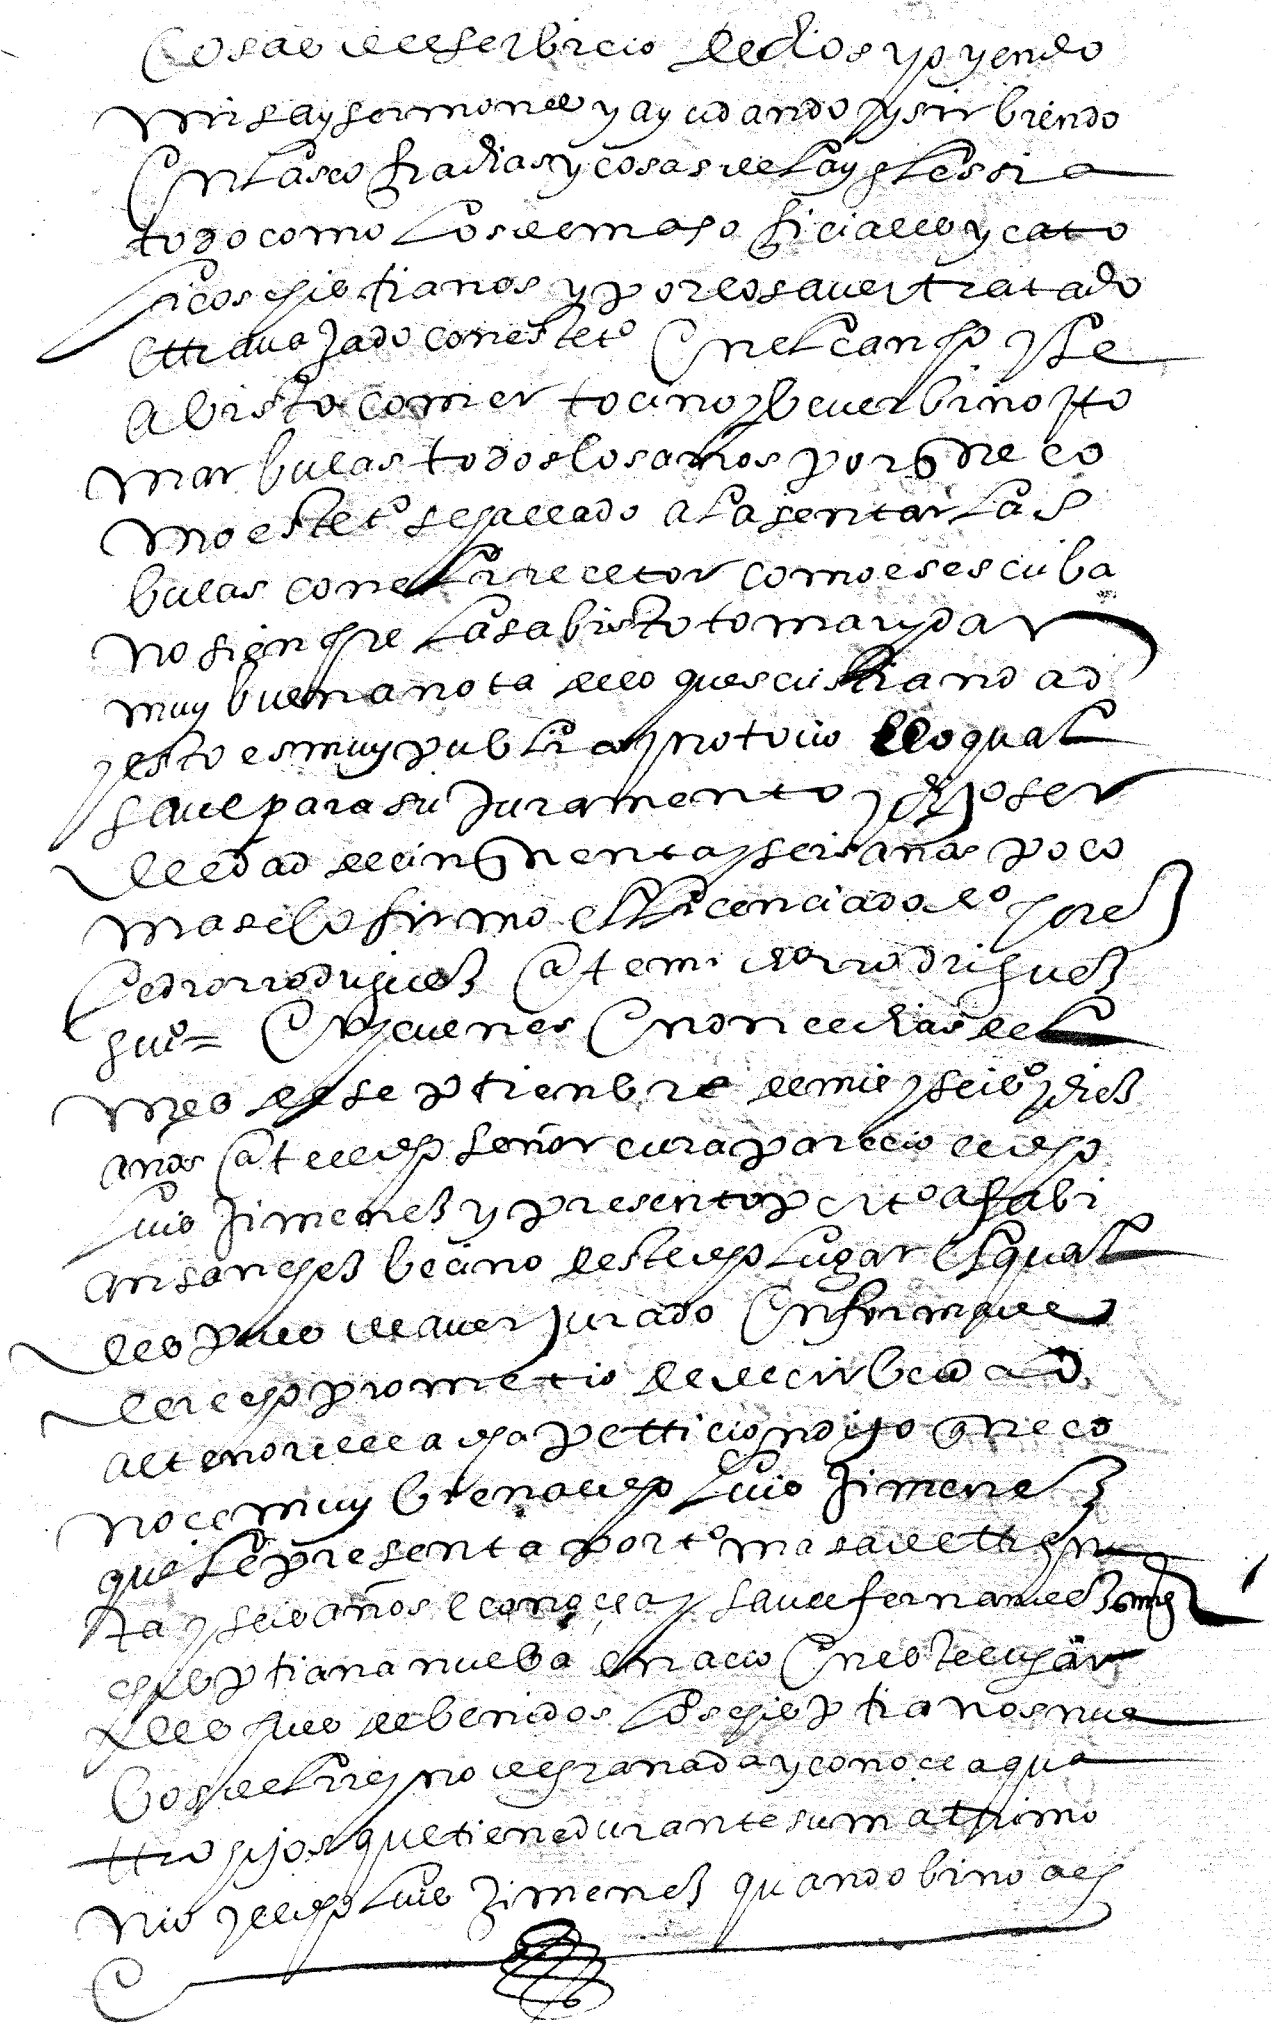 Cosas del serbicio de dios y oyendo
misa y sermones y ayudando y sirbiendo
En las cofradias y cosas de la yglessia
todo como los demas oficiales y cato
licos xpistianos y por los aver tratado
E ttravajado con este to En el canpo y le
a bisto comer tocino y bever bino y to
mar bulas todos los años porque co
mo este to se hallado a la sentar las
bulas con el rrecetor como es escriba
no sienpre las a bisto tomar y dar
muy buena nota de lo ques cristiandad
y esto es muy publico y notorio lo qual
save para su juramento y dijo ser
de edad de cinquenta y seis años poco
mas e lo firmo el licenciado do perez
Pedro rrodriguez Ante mi do rrodriguez
svno = E y en once dias del
mes de septienbre de mil y seiso y diez
años ante el dho señor cura parecio el dho
luis Jimenez y presento por to a fabi
an sanchez becino deste dho lugar El qual
despues de aver jurado En forma de
derecho prometio de decir berdad
al tenor de la dha petticion dijo que co
noce muy bien al dho luis Jimenez
que le presenta por to mas de ttreyn
ta y seis años e conoce a y save fernandez su muger
xpistiana nueba e nacio En este lugar
despues de benidos los xpistianos nue
bos del rreyno de granada y conoce a qua
ttro hijos que tiene durante su matrimo
nio y el dho luis Jimenez quando bino a es